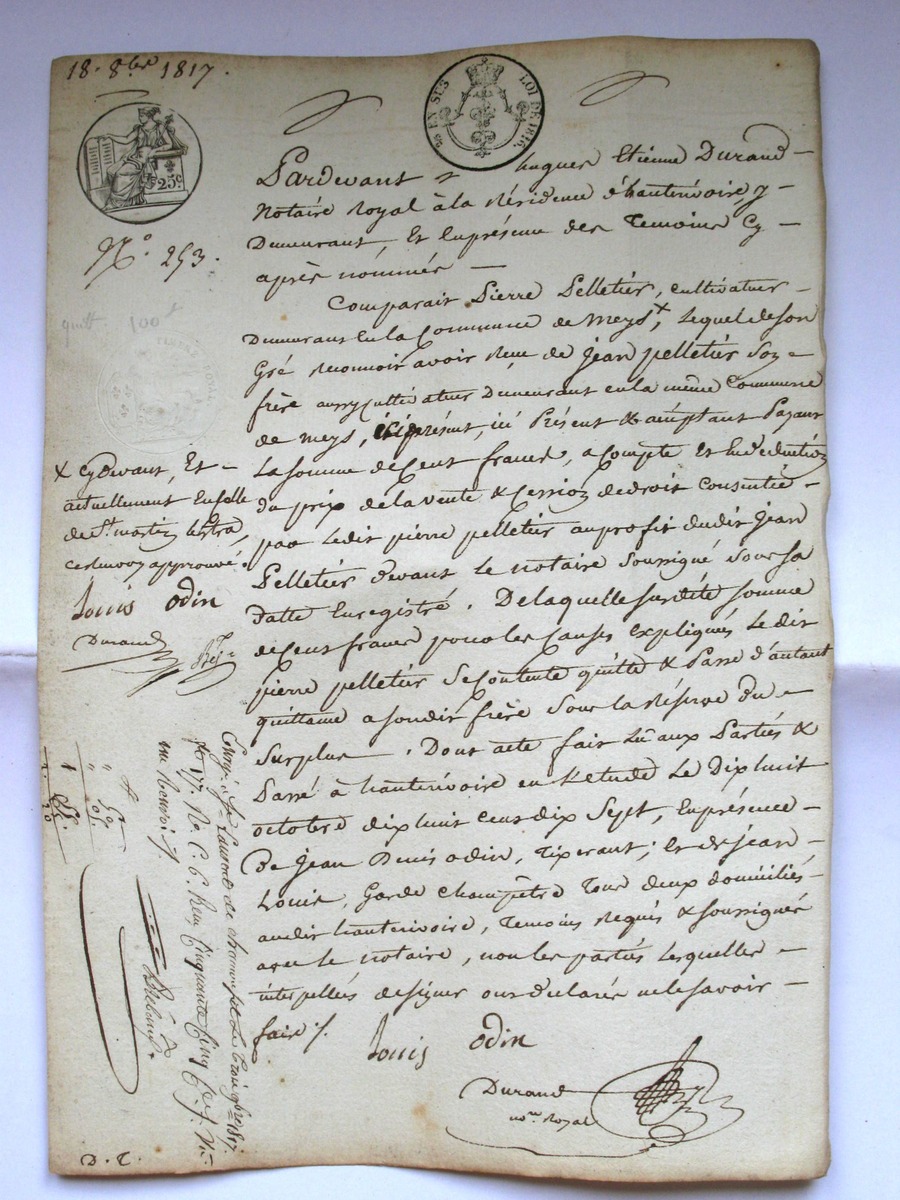 18. 8bre 1817.
25 EN SUS LOI DE 1816.
25c
N.° 253.
quitt. 100 f
Pardevant Me hugues Etienne Durand
Notaire Royal à la Résidence d'hauterivoire, y
Demeurant, Et En présence des Temoins Cy
après nommés
Comparait Pierre Pelletier, cultivateur
Demeurant En la Commune de Meys x, lequel de son
Gré reconnoit avoir Reçu de Jean pelletier Son
frère aussy cultivateur Demeurant en la même Commune
de Meys, ici Présent & acceptant Payant
La somme de Cent francs, a Compte et En déduction
Du prix de la vente & Cession de droit Consentie
par Ledit pierre pelletier au profit dudit Jean
Pelletier devant le notaire Soussigné Sous sa
Datte Enregistré. De laquelle susditte somme
de Cent francs pour les Causes Expliqués le dit
pierre pelletier Se Contente quitte & Passe d'autant
quittance a son dit frère Sous la Réserve du
Surplus. Dont acte fait Lû aux Parties &
Passé à hauterivoire en l'etude Le Dix huit
octobre dix huit cent dix Sept, En présence
De Jean Denis odin, Tixerant, et de Jean
Louis, Garde Champêtre Tous deux domiciliés
audit hauterivoire, Temoins Requis & soussignés
avec le notaire, non les parties lesquelles
interpellées de signer ont déclarés ne le savoir
faire ./.
Louis odin
Durand
not.re Royal
x Cy devant, Et
actuellement En celle
de St. martin lestra,
ce renvoy approuvé.
Louis odin
Durand
Enregé à St. Laurent de chamousset le trois 9bre 1817.
fo. 177. Ro. C. 6. Reçu Cinquante Cinq
D. T.